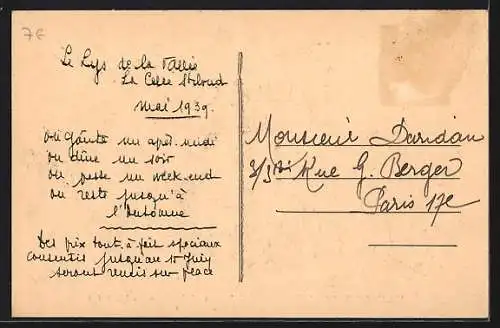 7E
Le Lys de la Vallée
La Celle St Cloud
Mai 1939
où goûte un après-midi
ou dîne un soir
ou passe un week-end
ou reste jusqu'à
l'Automne
Des prix tout à fait spéciaux
consentis jusqu'au 15 Juin
seront remis sur place
Monsieur Daridan
bis Rue G. Berger
Paris 17e